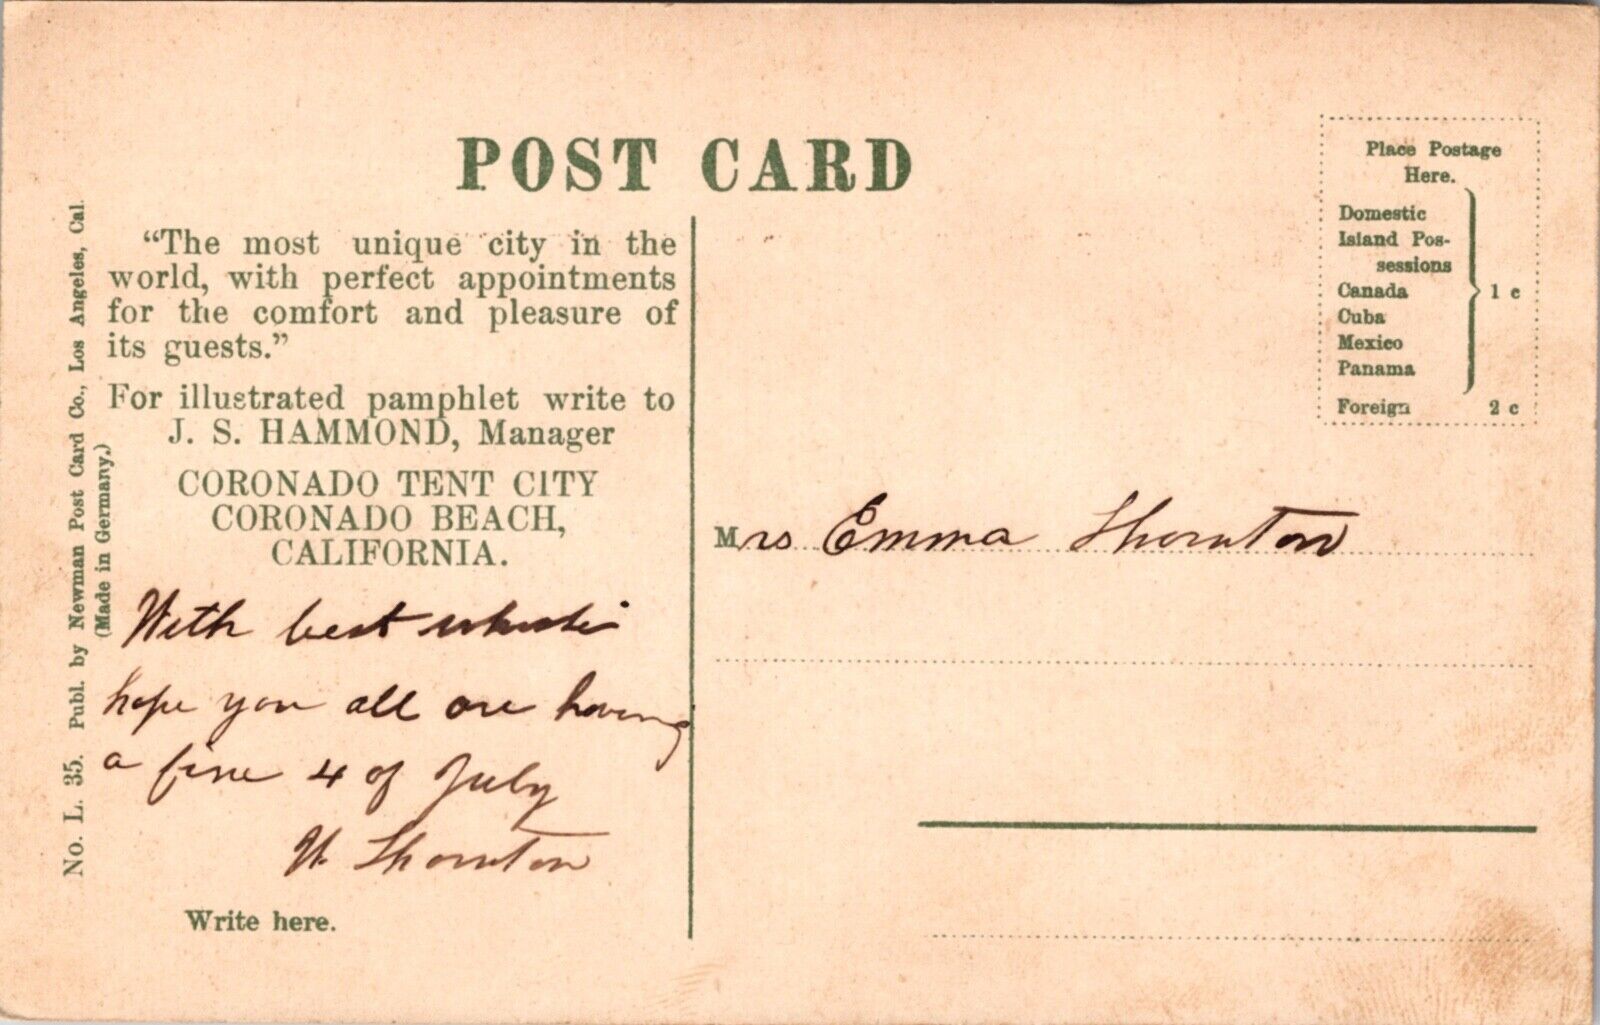 POST CARD
Place Postage
Here.
Domestic
Island Pos-
sessions
Canada
Cuba
Mexico
Panama
1 c
Foreign 2 c
"The most unique city in the
world, with perfect appointments
for the comfort and pleasure of
its guests."
For illustrated pamphlet write to
J. S. HAMMOND, Manager
CORONADO TENT CITY
CORONADO BEACH,
CALIFORNIA.
With best wishes
hope you all are having
a fine 4 of July
W. Thornton
Write here.
No. L. 35. Publ. by Newman Post Card Co., Los Angeles, Cal.
(Made in Germany.)
Mrs Emma Thornton